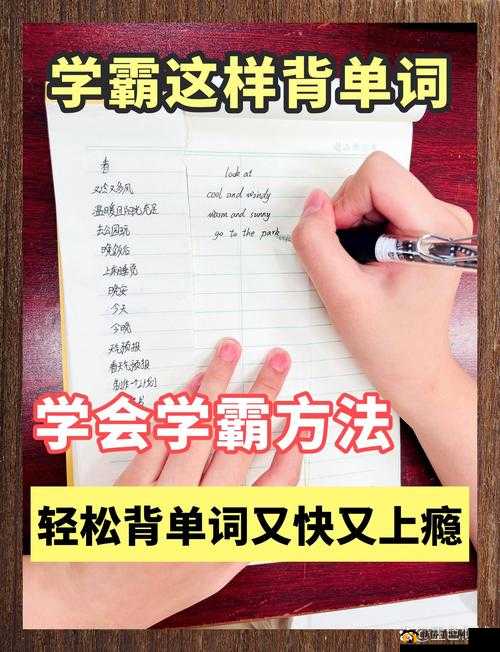 学霸这样背单词
看
又冷又多风
温暖且阳光充足
去公园玩
晚饭后
上床睡觉
晚安
今天
今晚
天气预报
看天气预报
制作一个计划
look at
cool and windy
warm and sunny
go to the park
学会学霸方法
轻松背单词又快又上瘾